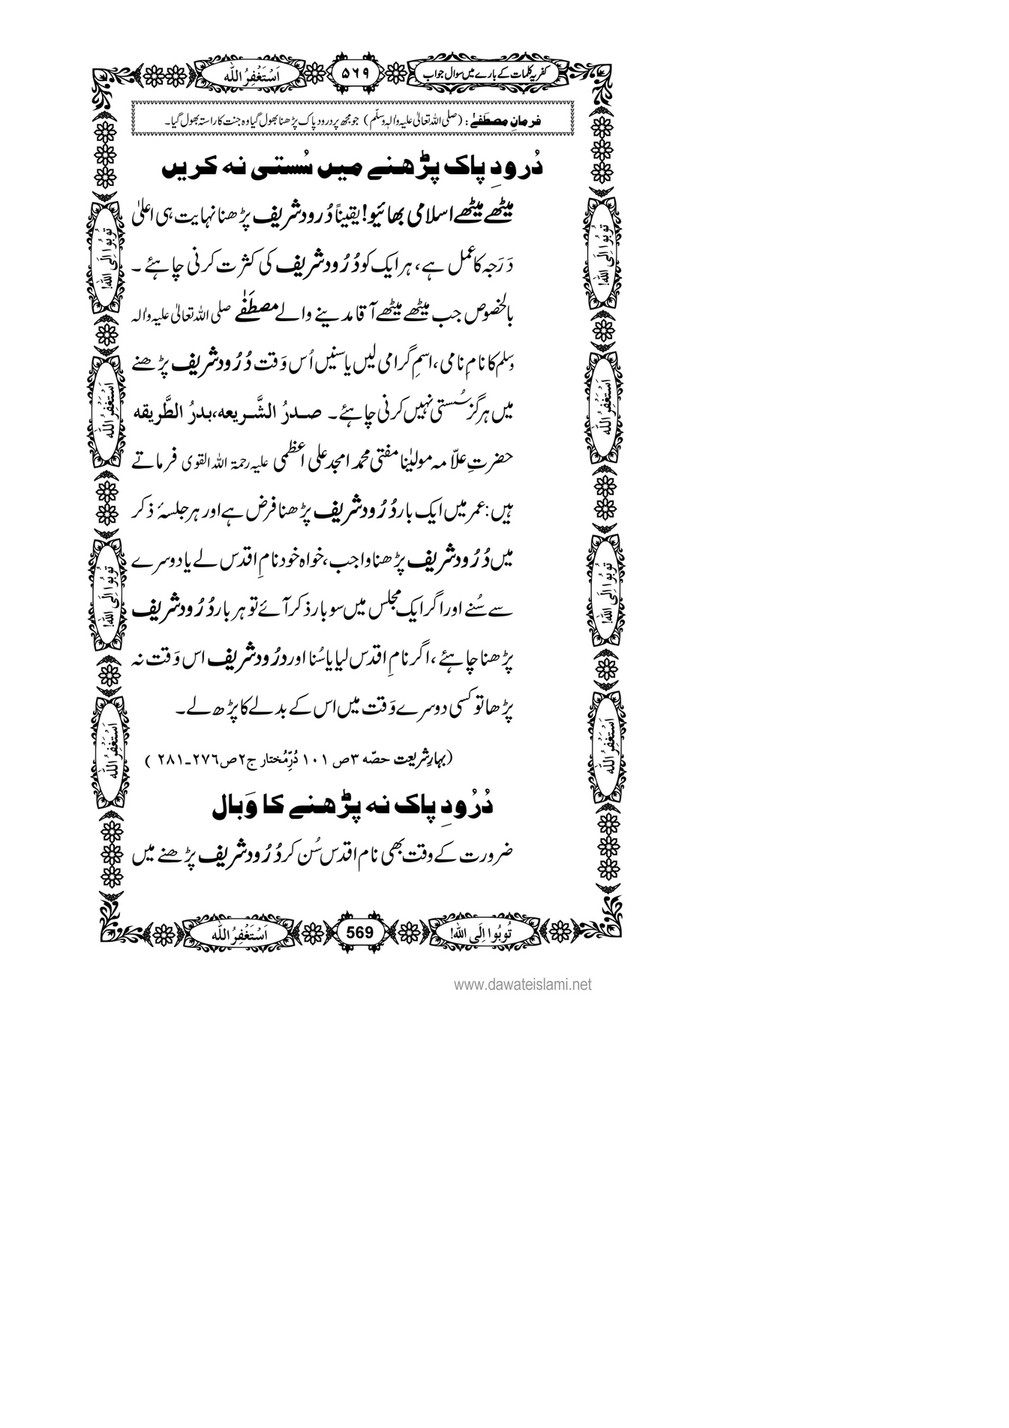 کفریہ کلمات کے بارے میں سوال جواب
۵۶۹
اَسْتَغْفِرُ اللّٰہ
فرمانِ مصطَفٰے : (صلی اللہ تعالیٰ علیہ والہٖ وسلّم) جو مجھ پر درود پاک پڑھنا بھول گیا وہ جنت کا راستہ بھول گیا۔
دُرودِ پاک پڑھنے میں سُستی نہ کریں
میٹھے میٹھے اسلامی بھائیو! یقیناً دُرود شریف پڑھنا نہایت ہی اعلیٰ
دَرَجہ کا عمل ہے، ہر ایک کو دُرُود شریف کی کثرت کرنی چاہئے ۔
بالخصوص جب میٹھے میٹھے آقا مدینے والے مصطَفٰے صلی اللہ تعالیٰ علیہ والہ
وسلم کا نامِ نامی ، اسمِ گرامی لیں یا سنیں اُس وَقت دُرُود شریف پڑھنے
میں ہرگز سُستی نہیں کرنی چاہئے۔ صدرُ الشَّریعہ، بدرُ الطَّریقہ
حضرتِ علاّمہ مولیٰنا مفتی محمد امجد علی اعظمی علیہ رحمۃ اللہ القوی فرماتے
ہیں: عمر میں ایک بار دُرُود شریف پڑھنا فرض ہے اور ہر جلسۂ ذکر
میں دُرُود شریف پڑھنا واجب، خواہ خود نامِ اقدس لے یا دوسرے
سے سُنے اور اگر ایک مجلس میں سو بار ذکر آئے تو ہر بار دُرُود شریف
پڑھنا چاہئے ، اگر نامِ اقدس لیا یا سُنا اور درُود شریف اس وَقت نہ
پڑھا تو کسی دوسرے وَقت میں اس کے بدلے کا پڑھ لے۔
(بہارِ شریعت حصّہ ۳ ص ۱۰۱ دُرِّمُختار ج۲ ص۲۷۶۔۲۸۱ )
دُرُودِ پاک نہ پڑھنے کا وَبال
ضرورت کے وقت بھی نامِ اقدس سُن کر دُرُود شریف پڑھنے میں
تُوبُوا اِلَی اللّٰہ!
اَسْتَغْفِرُ اللّٰہ
تُوبُوا اِلَی اللّٰہ!
اَسْتَغْفِرُ اللّٰہ
تُوبُوا اِلَی اللّٰہ!
اَسْتَغْفِرُ اللّٰہ
تُوبُوا اِلَی اللّٰہ!
اَسْتَغْفِرُ اللّٰہ
تُوبُوا اِلَی اللّٰہ!
569
اَسْتَغْفِرُ اللّٰہ
www.dawateislami.net